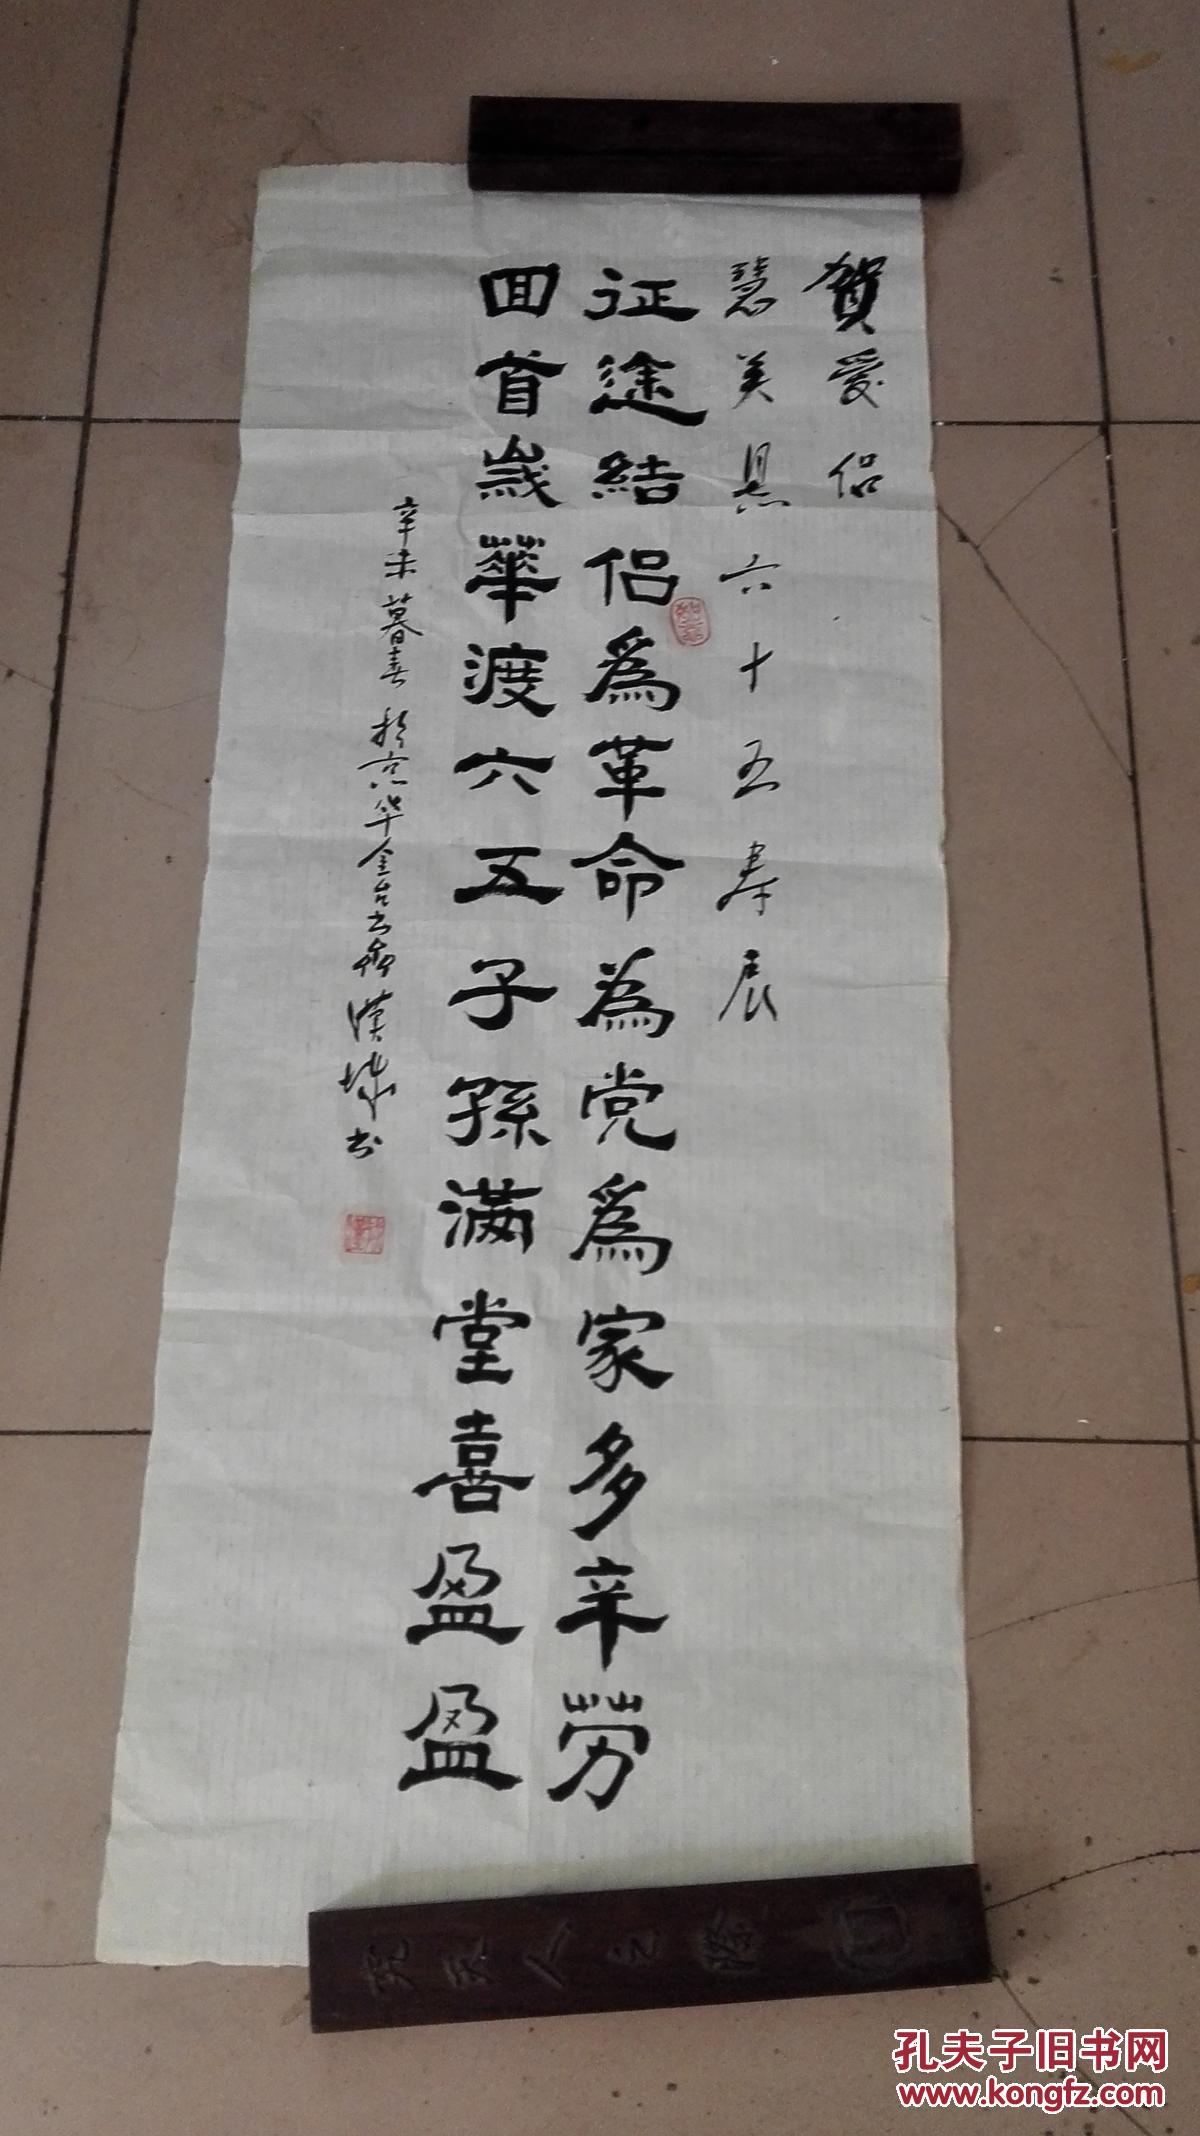 賀爱侣
慧美具六十五寿辰
征途結侣爲革命為党爲家多辛劳
回首歲華渡六五子孫滿堂喜盈盈
辛未暮春於京华金台书斋漢城书
孔夫子旧书网
www.kongfz.com